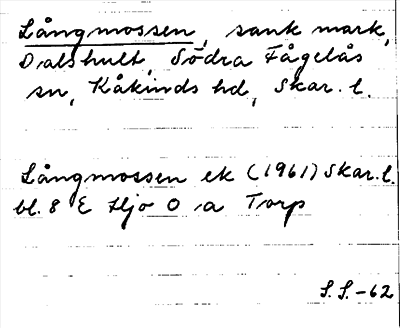 Långmossen, sank mark,
Dalshult, Södra Fågelås
sn, Kåkinds hd, Skar. l.
Långmossen ek (1961) Skar. l.
bl. 8 E Hjo O a Torp
S. S. -62